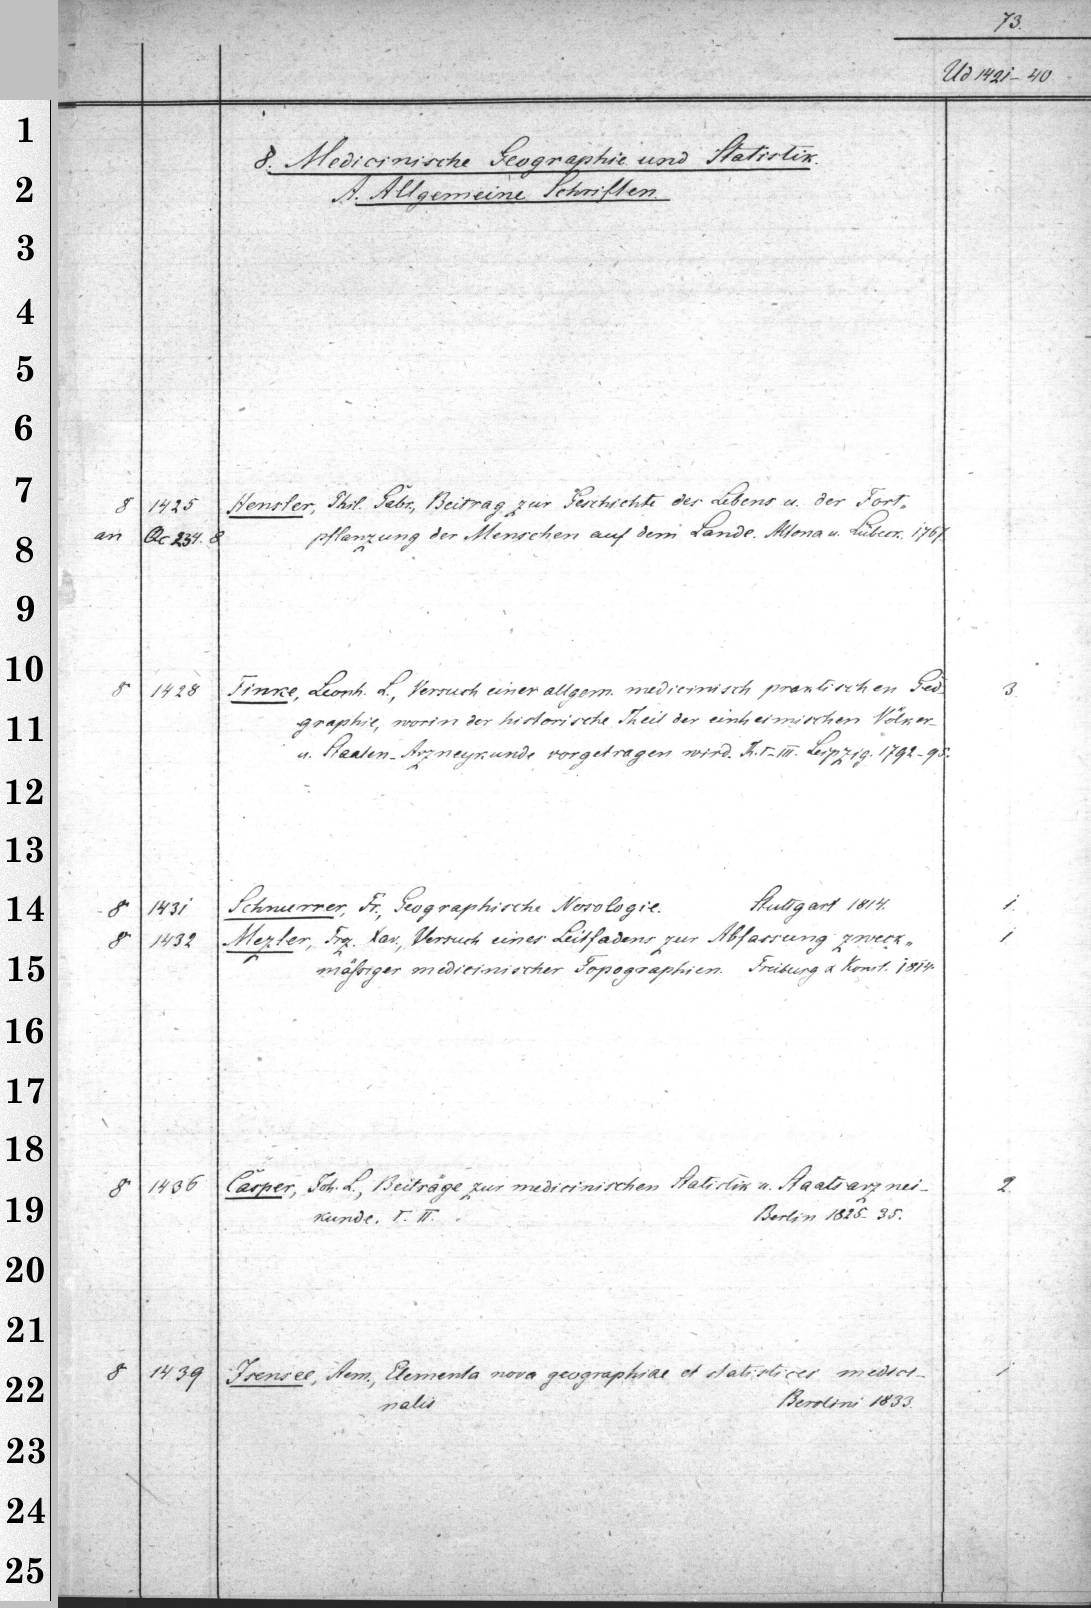 73.
Ud 1421-40
8. Medicinische Geographie und Statistik.
A. Allgemeine Schriften.
8 1425 Hensler, Phil. Gabr., Beitrag zur Geschichte des Lebens u. der Fort„
an Qc 234. 8 pflanzung der Menschen auf dem Lande. Altona u. Lübeck. 1767.
8 1428 Finke, Leonh. L., Versuch einer allgem. medicinisch praktischen Geo-
graphie, worin der historische Theil der einheimischen Völker-
u. Staaten-Arzneykunde vorgetragen wird. Th. I-III. Leipzig. 1792-95.
3
8 1431 Schnurrer, Fr., Geographische Nosologie. Stuttgart 1814. 1.
8 1432 Mezler, Frz. Xav., Versuch eines Leitfadens zur Abfassung zweck„
mäßiger medicinischer Topographien. Freiburg & Konst. 1814.
1
8 1436 Casper, Joh. L., Beiträge zur medicinischen Statistik u. Staatsarznei-
kunde. I. II. Berlin 1825-35.
2.
8 1439 Isensee, Aem., Elementa nova geographiae et statistices medici-
nalis Berolini 1833.
1
1
2
3
4
5
6
7
8
9
10
11
12
13
14
15
16
17
18
19
20
21
22
23
24
25